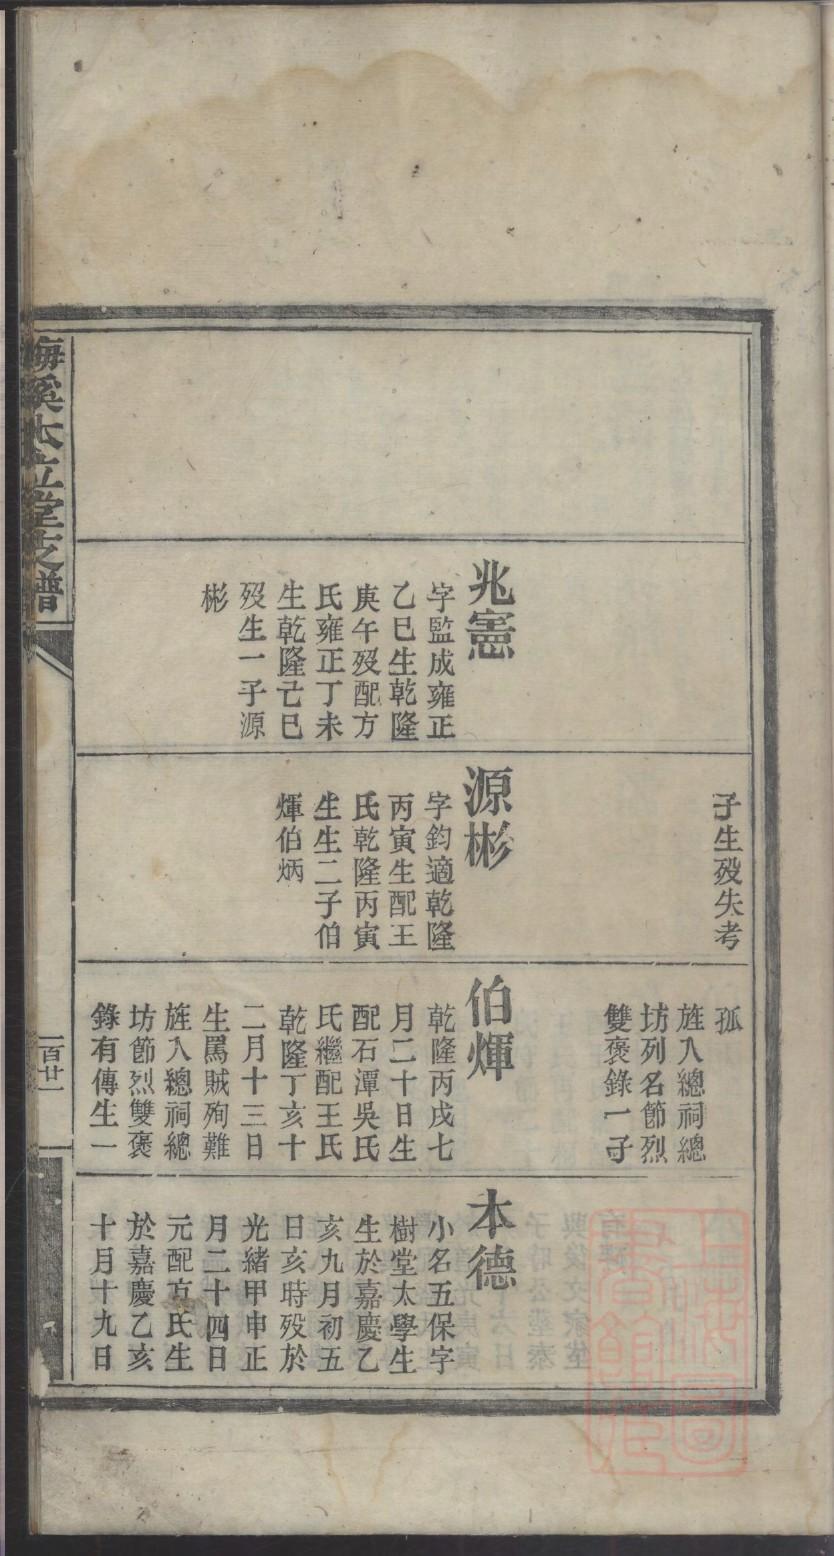 子生歿失考
孤
旌入總祠總
坊列名節烈
雙褒錄一子
兆憲
字監成雍正
乙巳生乾隆
庚午歿配方
氏雍正丁未
生乾隆己巳
歿生一子源
彬
源彬
字鈞適乾隆
丙寅生配王
氏乾隆丙寅
生生二子伯
煇伯炳
伯煇
乾隆丙戌七
月二十日生
配石潭吳氏
氏繼配王氏
乾隆丁亥十
二月十三日
生罵賊殉難
旌入總祠總
坊節烈雙褒
錄有傳生一
本德
小名五保字
樹堂太學生
生於嘉慶乙
亥九月初五
日亥時歿於
光緒甲申正
月二十四日
元配方氏生
於嘉慶乙亥
十月十九日
梅溪本立堂支譜
一百廿一